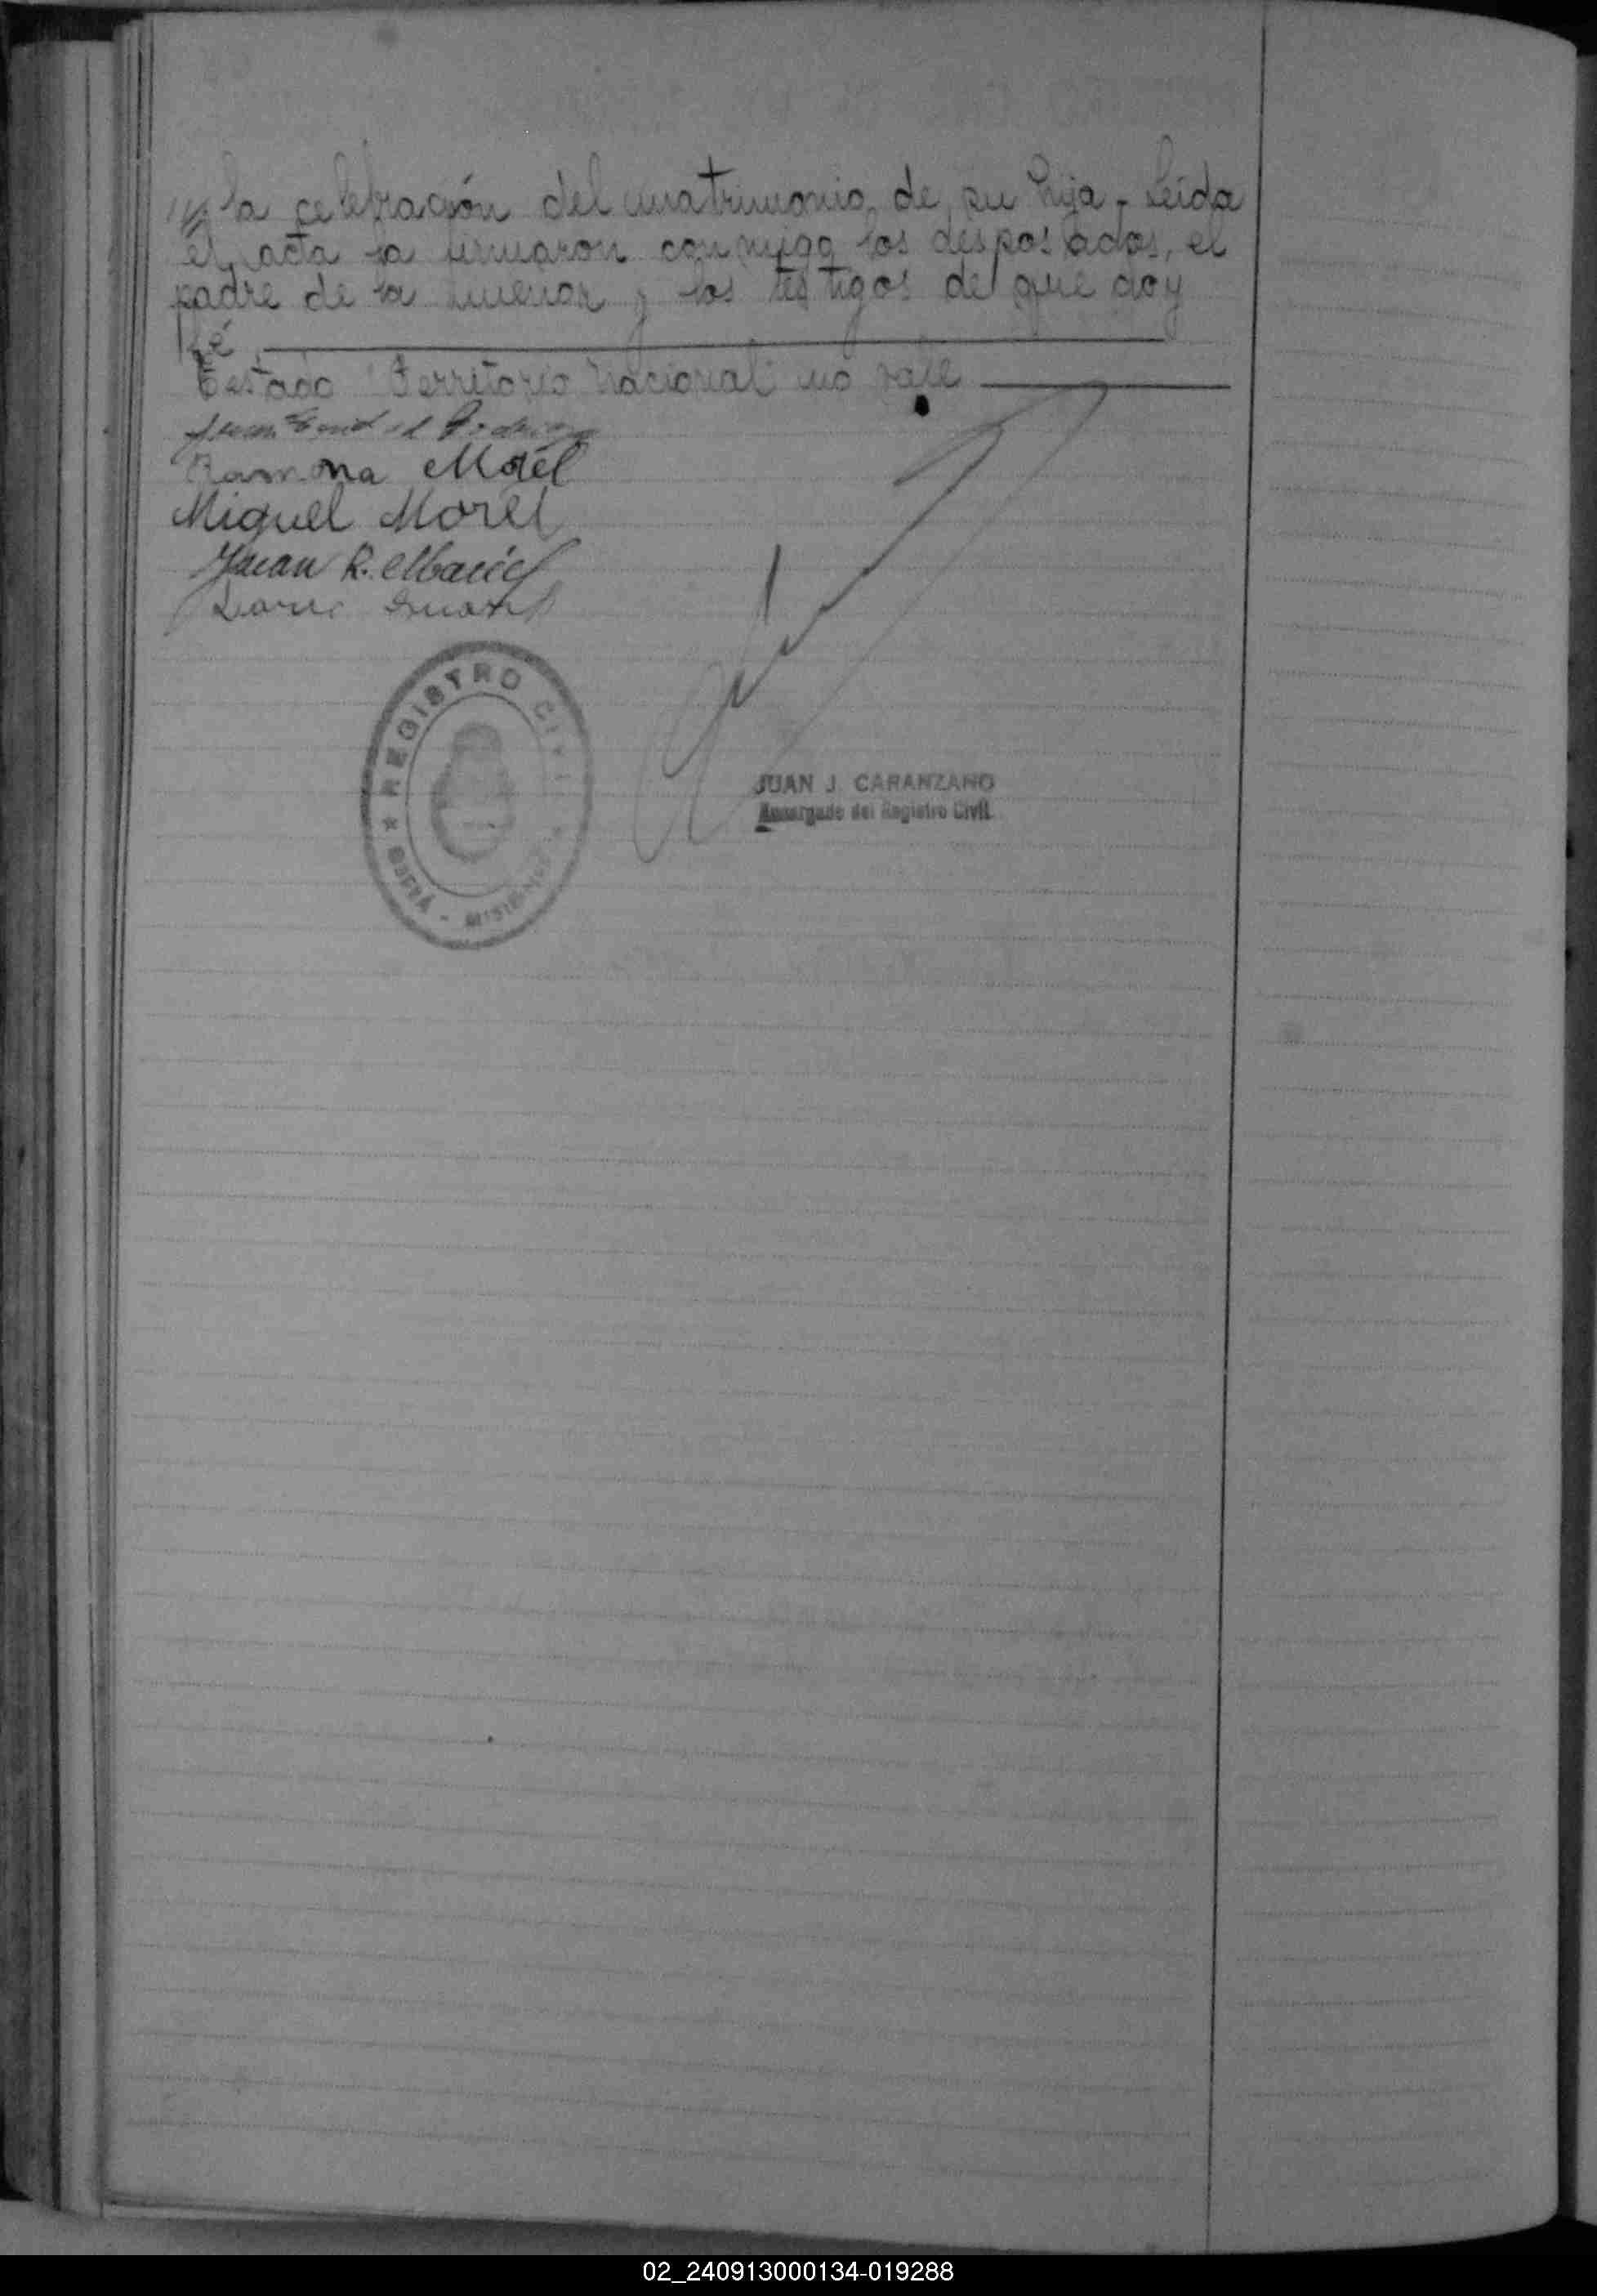 /// la celebración del matrimonio de su hija - Leida
el acta la firmaron conmigo los desposados, el
padre de la menor y los testigos de que doy
fé
Testado "Territorio Nacional" no vale
Juan
Ramona Morel
Miguel Morel
Juan R. Maciel
REGISTRO CIVIL
MISIONES
JUAN J. CARANZANO
Encargado del Registro Civil
02_240913000134-019288